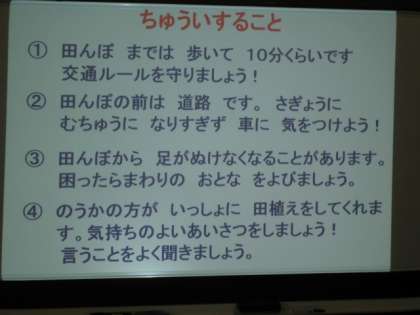 ちゅういすること
① 田んぼ までは 歩いて 10分くらいです
交通ルールを守りましょう！
② 田んぼの前は 道路 です。 さぎょうに
むちゅうに なりすぎず 車に 気をつけよう！
③ 田んぼから 足がぬけなくなることがあります。
困ったらまわりの おとな をよびましょう。
④ のうかの方が いっしょに 田植えをしてくれま
す。気持ちのよいあいさつをしましょう！
言うことをよく聞きましょう。